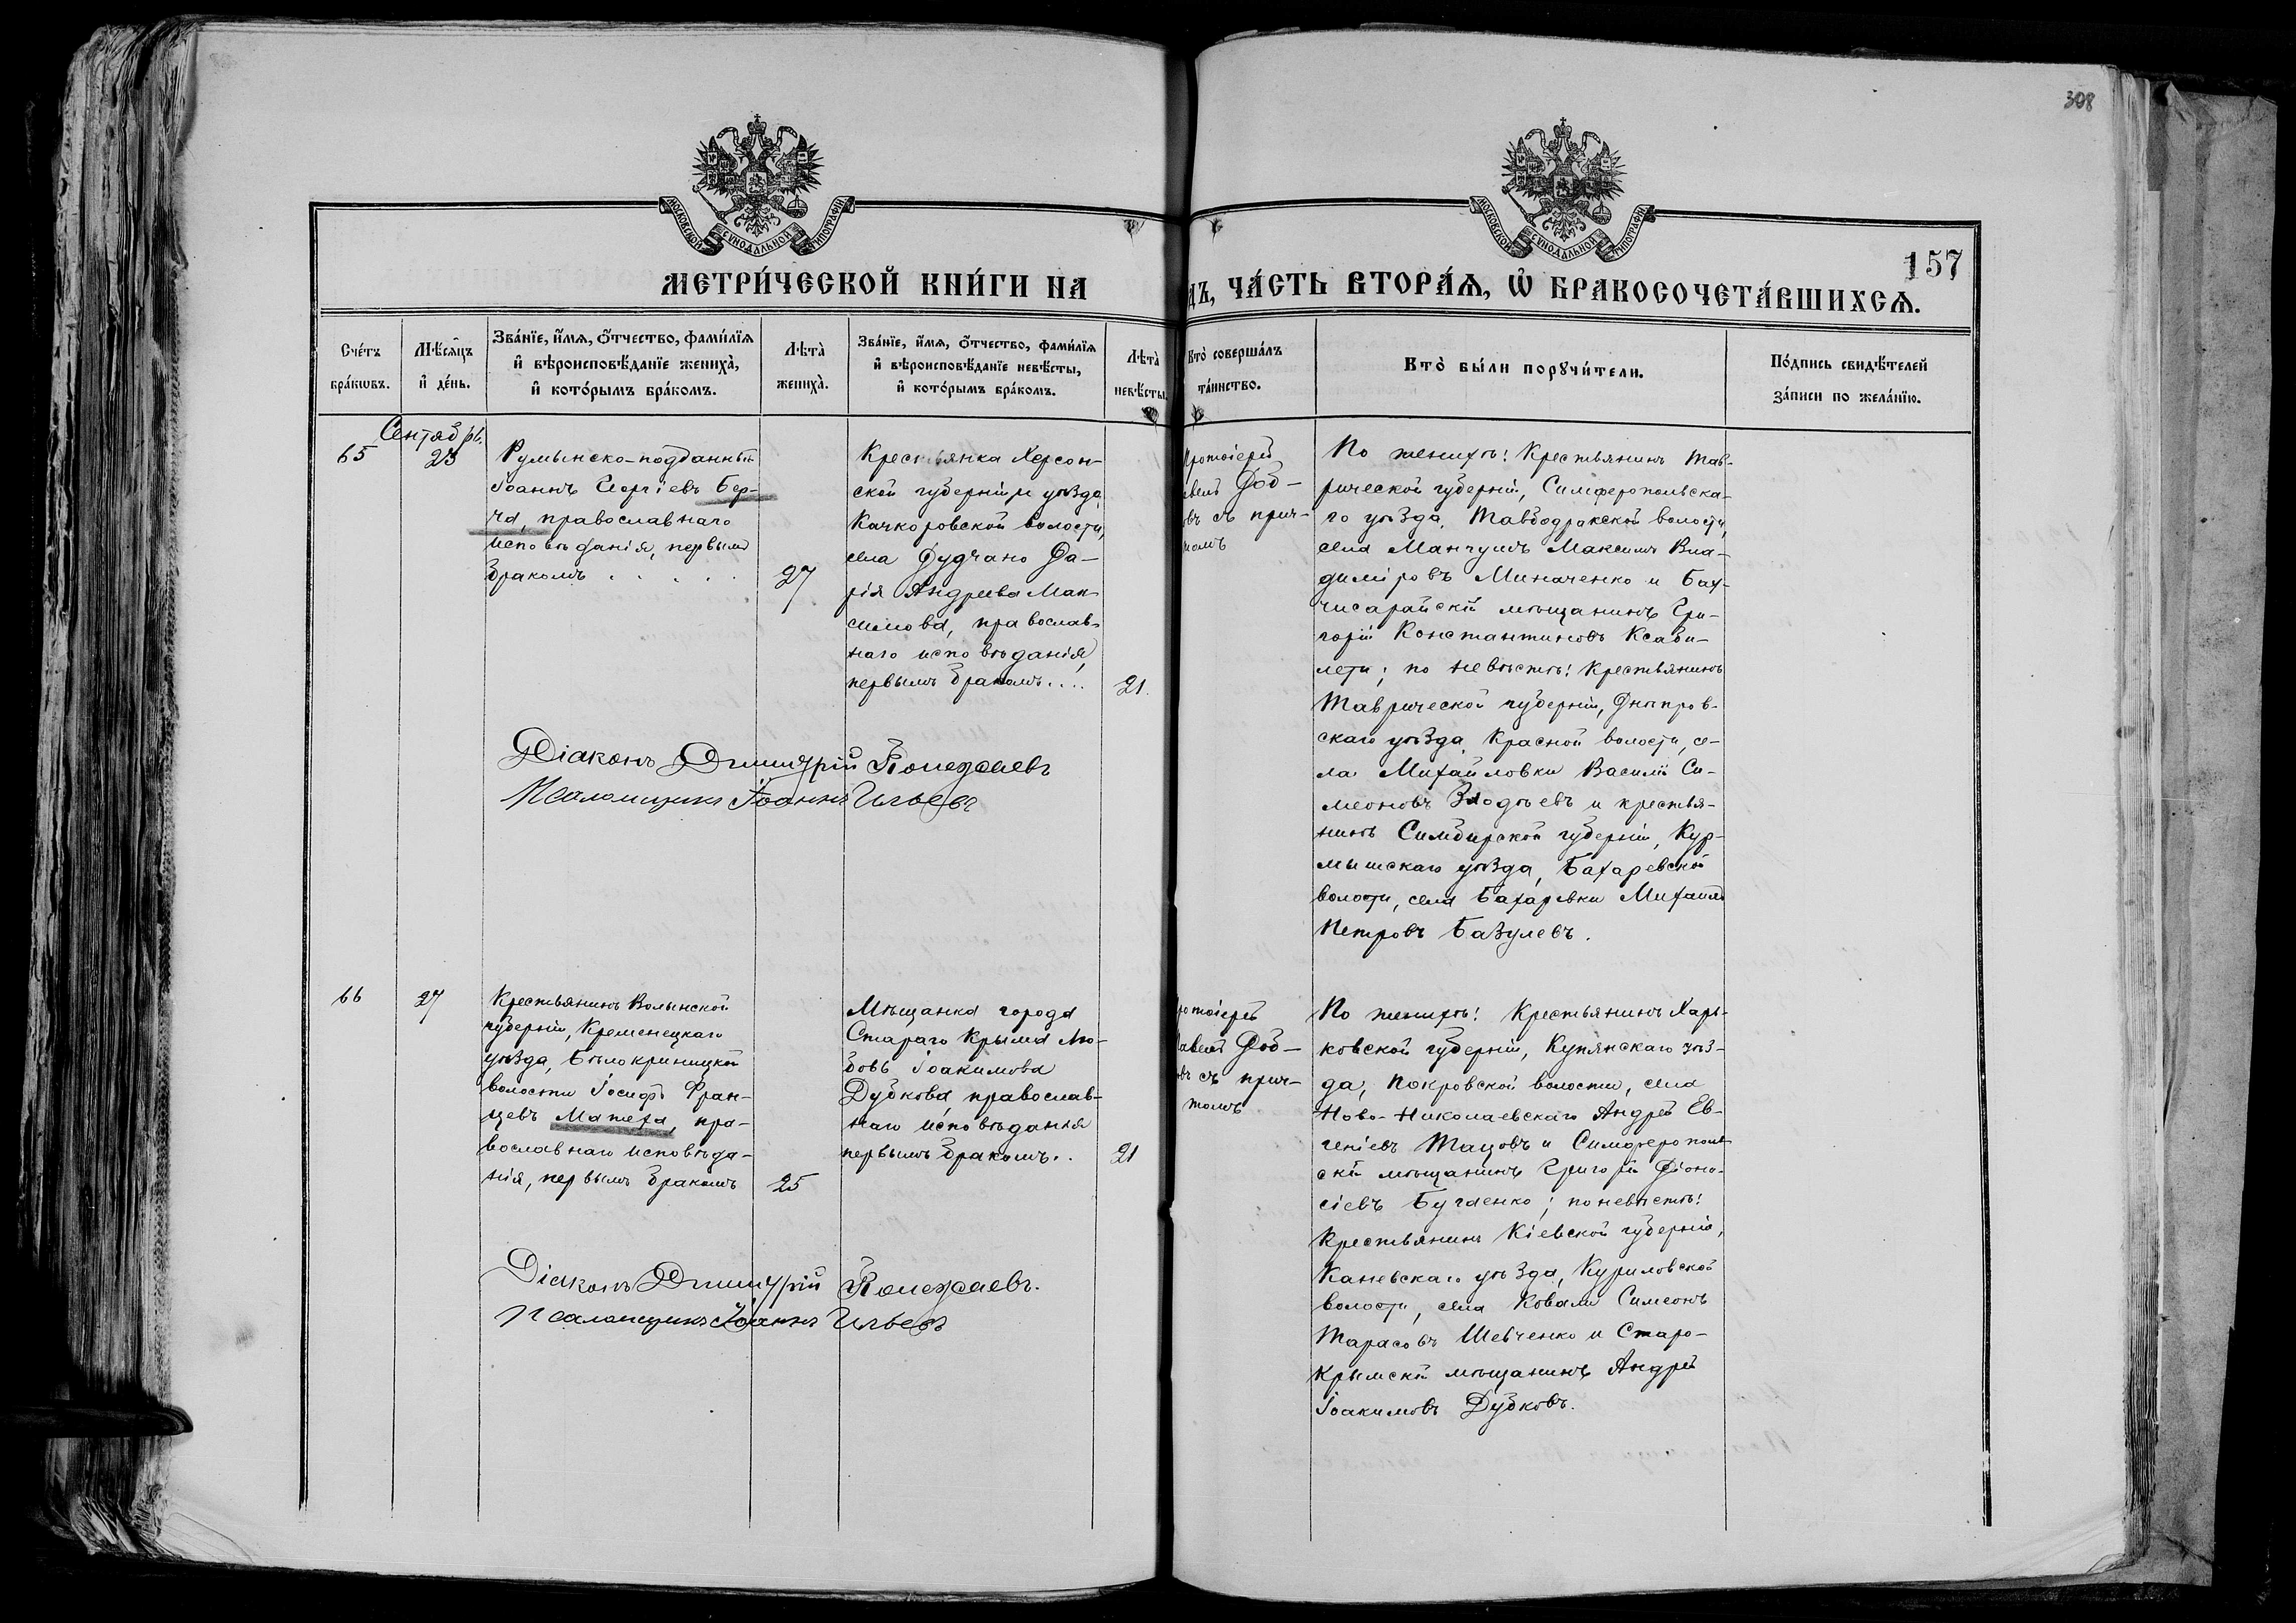 308
МОСКОВСКОЙ СѴНОДАЛЬНОЙ ТИПОГРАФІИ
МОСКОВСКОЙ СѴНОДАЛЬНОЙ ТИПОГРАФІИ
157
МЕТРИ́ЧЕСКОЙ КНИ́ГИ НА
ДЪ, ЧА́СТЬ ВТОРА́Ѧ, Ѽ БРАКОСОЧЕТА́ВШИХСѦ.
Сче́тъ
бра́кѡвъ.
Мѣ́сѧцъ
и҆ де́нь.
Зва́нїе, и҆́мѧ, ѻ҆́тчество, фами́лїѧ
и҆ вѣроисповѣ́данїе жениха̀,
и҆ кото́рымъ бра́комъ.
Лѣта̀
жениха̀.
Зва́нїе, и҆́мѧ, ѻ҆́тчество, фами́лїѧ
и҆ вѣроисповѣ́данїе невѣ́сты,
и҆ кото́рымъ бра́комъ.
Лѣта̀
невѣ́сты.
Кто̀ соверша́лъ
та́инство.
Кто̀ бы́ли порꙋчи́тели.
По́дпись свидѣ́телей
за́писи по жела́нїю.
65
Сентябрь.
23
Румынско-подданный
Іоаннъ Георгіевъ Бер-
ча, православнаго
исповѣданія, первымъ
бракомъ . . . . .
27
Крестьянка Херсон-
ской губерніи и уѣзда,
Качкоровской волости,
села Дудчано Да-
рія Андреева Мак-
симова, православ-
наго исповѣданія,
первымъ бракомъ....
21.
Протоіерей
Доб-
овъ съ прич-
томъ
По женихѣ: Крестьянинъ Тав-
рической губерніи, Симферопольска-
го уѣзда, волости,
села Мангушъ Максимъ Вла-
диміровъ Миначенко и Бах-
чисарайскій мѣщанинъ Гри-
горій Константиновъ Ксави-
лети; по невѣстѣ: Крестьянинъ
Таврической губерніи, Днѣпров-
скаго уѣзда, Красной волости, се-
ла Михайловки Василій Си-
меоновъ Злодѣевъ и крестья-
нинъ Симбирской губерніи, Кур-
мышскаго уѣзда, Бахаревской
волости, села Бахаревки Михаилъ
Петровъ Базулевъ.
Діаконъ Димитрій Полежаевъ
Псаломщикъ Іоаннъ Ильевъ
66
27
Крестьянинъ Волынской
губерніи, Кременецкаго
уѣзда, Бѣлокриницкой
волости Іосифъ Фран-
цевъ Матеха, пра-
вославнаго исповѣда-
нія, первымъ бракомъ
25
Мѣщанка города
Стараго Крыма Лю-
бовь Іоакимова
Дубкова, православ-
наго исповѣданія
первымъ бракомъ..
21
Протоіерей
Павелъ Доб-
овъ съ прич-
томъ
По женихѣ: Крестьянинъ Харь-
ковской губерніи, Купянскаго уѣз-
да, Покровской волости, села
Ново-Николаевскаго Андрей Ев-
геніевъ Тацовъ и Симферополь-
скій мѣщанинъ Григорій Діони-
сіевъ Бугаенко; по невѣстѣ:
Крестьянинъ Кіевской губерніи,
Каневскаго уѣзда, Куриловской
волости, села Ковали Симеонъ
Тарасовъ Шевченко и Старо-
крымскій мѣщанинъ Андрей
Іоакимовъ Дубковъ.
Діаконъ Димитрій Полежаевъ.
Псаломщикъ Іоаннъ Ильевъ